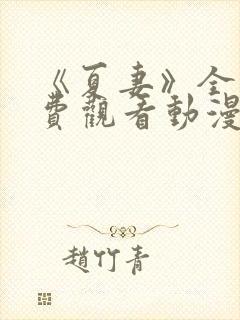 《夏妻》全
費觀看動漫
趙竹青